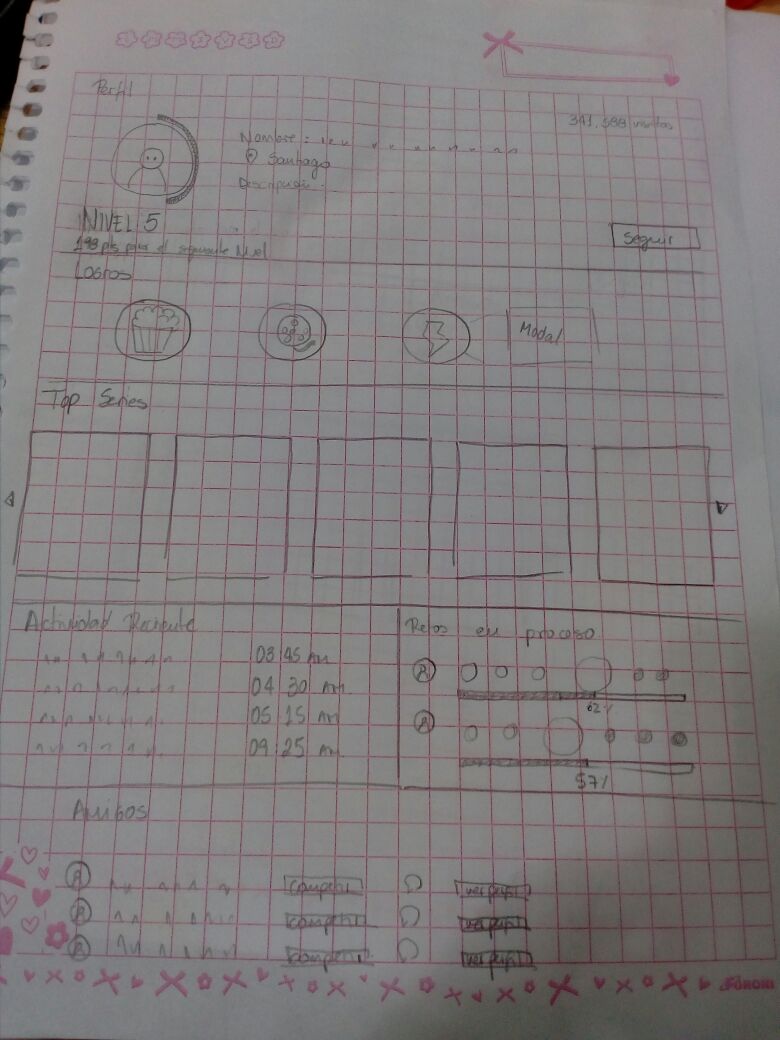 Perfil
341.588 visitas
Nombre :
Santiago
Descripción
NIVEL 5
198 pts para el siguiente Nivel
Seguir
Logros
Modal
Top Series
Actividad Reciente
03 45 AM
04 30 AM
05 15 AM
09 25 AM
Retos en proceso
R
62%
R
57%
Amigos
R competir ver perfil
R competir ver perfil
R competir ver perfil